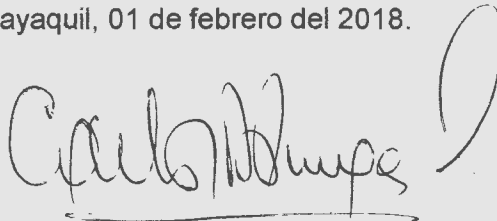 ayaquil, 01 de febrero del 2018.